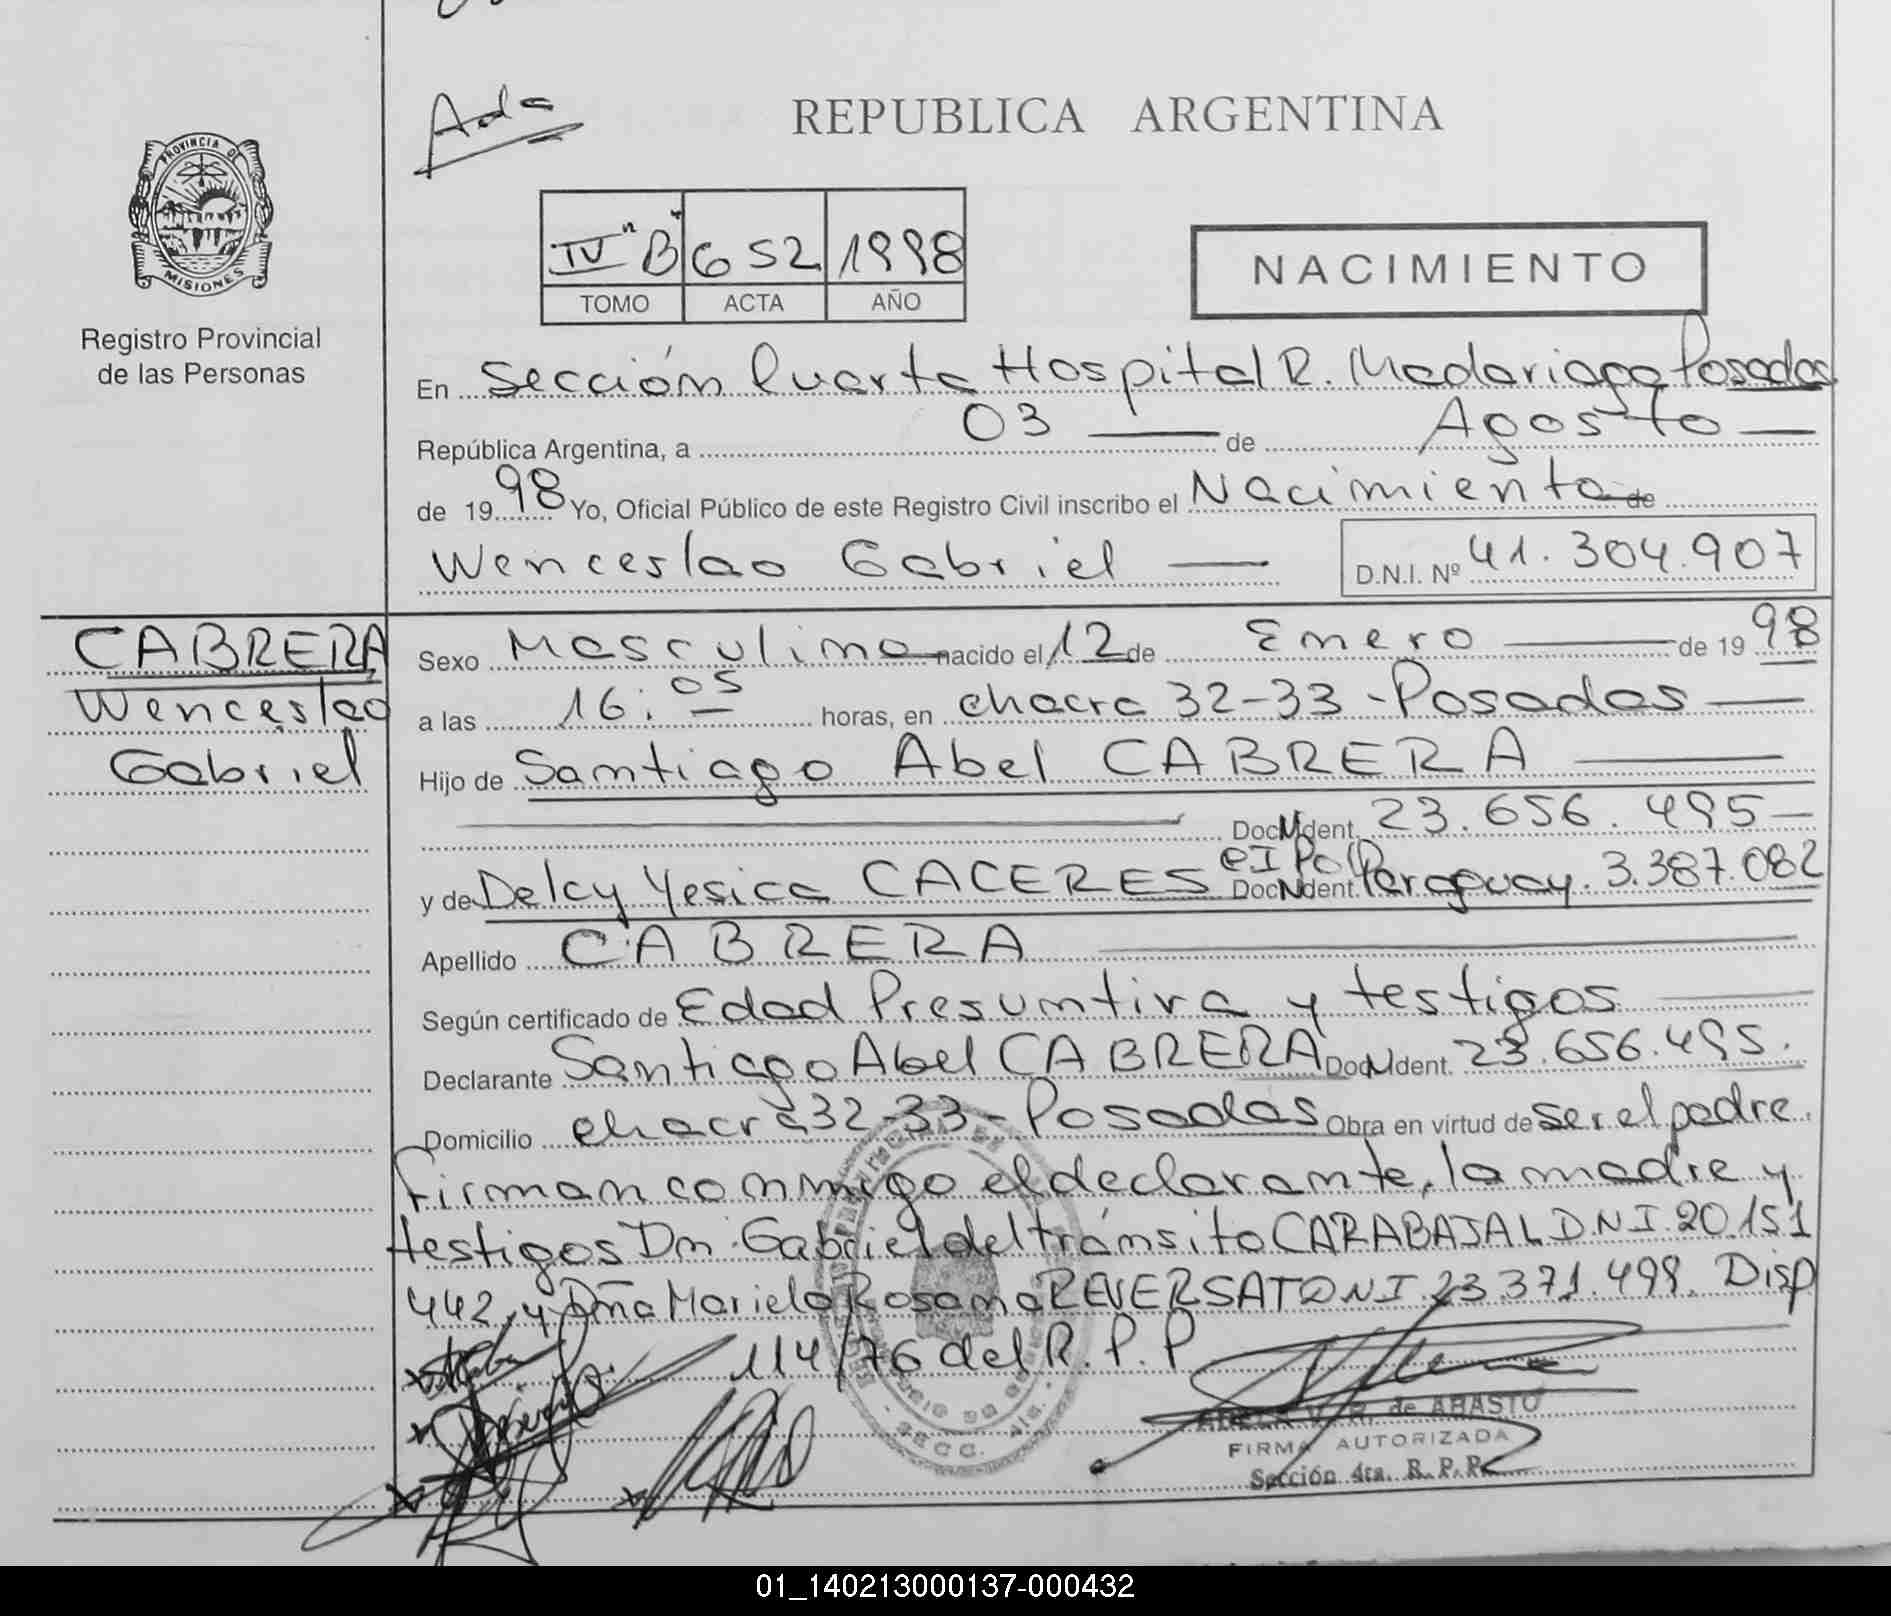 Ada
REPUBLICA ARGENTINA
PROVINCIA DE
MISIONES
Registro Provincial
de las Personas
IV" B 652 1998
TOMO ACTA AÑO
NACIMIENTO
En Sección Cuarta Hospital R. Madariaga Posadas
República Argentina, a 03 de Agosto
de 1998 Yo, Oficial Público de este Registro Civil inscribo el Nacimiento de
Wenceslao Gabriel D.N.I. Nº 41.304.907
CABRERA
Wenceslao
Gabriel
Sexo Masculino nacido el 12 de Enero de 1998
a las 16:05 horas, en chacra 32-33 - Posadas
Hijo de Santiago Abel CABRERA
Doc. Ident. 23.656.495
y de Delcy Yesica CACERES Doc. Ident. CI Pol Paraguay. 3.387.082
Apellido CABRERA
Según certificado de Edad Presuntiva y testigos
Declarante Santiago Abel CABRERA Doc. Ident. 23.656.495.
Domicilio chacra 32-33 - Posadas Obra en virtud de ser el padre.
Firman conmigo el declarante, la madre y
testigos Dn. Gabriel del tránsito CARABAJAL D.N.I. 20.151
442 y Dña Mariela Rosana REVERSAT DNI 23.371.498. Disp
114/76 del R.P.P
de ABASTO
FIRMA AUTORIZADA
Sección 4ta. R.P.P.
01_140213000137-000432